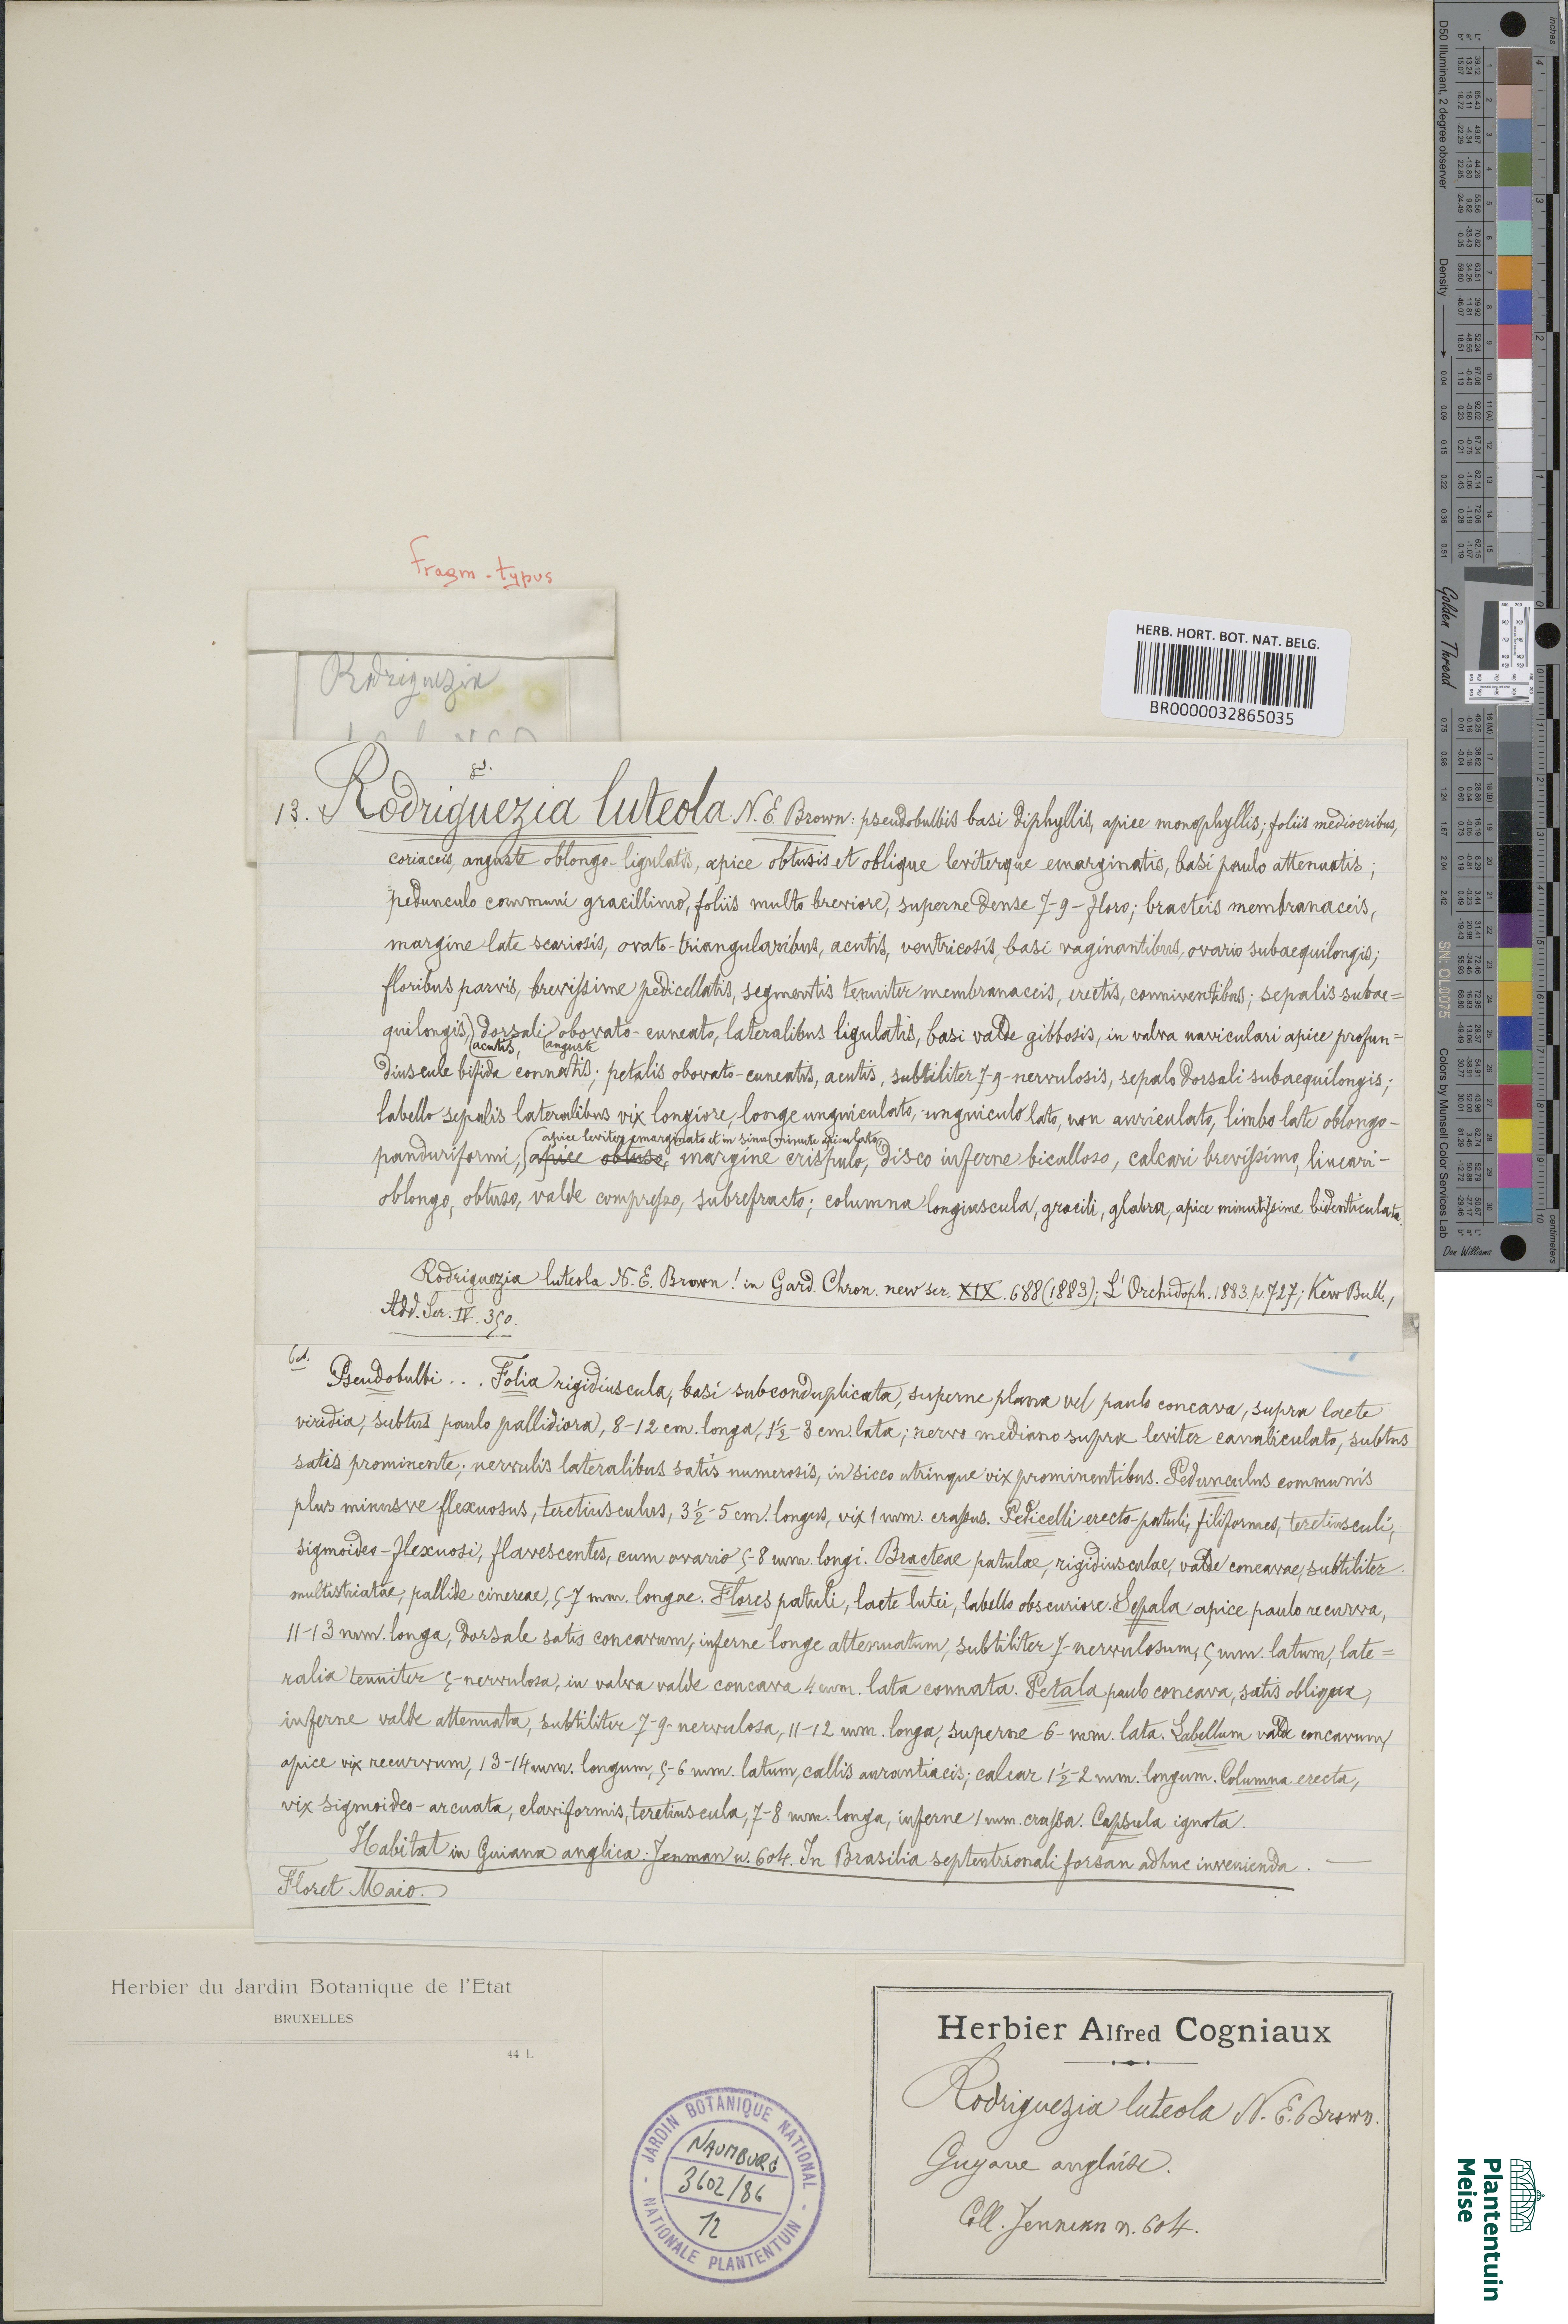 Fragm - typus
Rodriguezia
HERB. HORT. BOT. NAT. BELG.
BR0000032865035
gd.
13. Rodriguezia luteola N. E. Brown: pseudobulbis basi diphyllis, apice monophyllis; foliis mediocribus,
coriaceis, anguste oblongo-ligulatis, apice obtusis et oblique leviterque emarginatis, basi paulo attenuatis;
pedunculo communi gracillimo, foliis multo breviore, superne dense 7-9-floro; bracteis membranaceis,
margine late scariosis, ovato-triangularibus, acutis, ventricosis, basi vaginantibus, ovario subaequilongis;
floribus parvis, brevissime pedicellatis, segmentis tenuiter membranaceis, erectis, conniventibus; sepalis subae=
quilongis, dorsali obovato-cuneato, lateralibus ligulatis, basi valde gibbosis, in valva naviculari apice profun=
acutis, anguste
diuscule bifida connatis; petalis obovato-cuneatis, acutis, subtiliter 7-9-nervulosis, sepalo dorsali subaequilongis;
labello sepalis lateralibus vix longiore, longe unguiculato, unguiculo lato, non auriculato, limbo late oblongo-
apice leviter emarginato et in sinu minute apiculato
panduriformi, apice obtuso, margine crispulo, disco inferne bicalloso, calcari brevissimo, lineari-
oblongo, obtuso, valde compresso, subrefracto; columna longiuscula, gracili, glabra, apice minutissime bidenticulata.
Rodriguezia luteola N. E. Brown! in Gard. Chron. new ser. XIX. 688 (1883); L'Orchidoph. 1883 p. 727; Kew Bull.,
Add. Ser. IV. 350.
Pseudobulbi . . . Folia rigidiuscula, basi subconduplicata, superne plana vel paulo concava, supra laete
viridia, subtus paulo pallidiora, 8-12 cm. longa, 1½-3 cm. lata; nervo mediano supra leviter canaliculato, subtus
satis prominente; nervulis lateralibus satis numerosis, in sicco utrinque vix prominentibus. Pedunculus communis
plus minusve flexuosus, teretiusculus, 3½-5 cm. longus, vix 1 mm. crassus. Pedicelli erecto-patuli, filiformes, teretiusculi,
sigmoideo-flexuosi, flavescentes, cum ovario 5-8 mm. longi. Bracteae patulae, rigidiusculae, valde concavae, subtiliter
multistriatae, pallide cinereae, 5-7 mm. longae. Flores patuli, laete lutei, labello obscuriore. Sepala apice paulo recurva,
11-13 mm. longa, dorsale satis concavum, inferne longe attenuatum, subtiliter 7-nervulosum, 5 mm. latum, late=
ralia tenuiter 5-nervulosa, in valva valde concava 4 mm. lata connata. Petala paulo concava, satis obliqua,
inferne valde attenuata, subtiliter 7-9-nervulosa, 11-12 mm. longa, superne 6-mm. lata. Labellum valde concavum,
apice vix recurvum, 13-14 mm. longum, 5-6 mm. latum, callis aurantiacis; calcar 1½-2 mm. longum. Columna erecta,
vix sigmoideo-arcuata, claviformis, teretiuscula, 7-8 mm. longa, inferne 1 mm. crassa. Capsula ignota.
Habitat in Guiana anglica: Jenman n. 604. In Brasilia septentrionali forsan adhuc invenienda. —
Floret Maio.
Herbier du Jardin Botanique de l'Etat
BRUXELLES
44 L
JARDIN BOTANIQUE NATIONAL
NAUMBURG
3602/86
12
NATIONALE PLANTENTUIN
Herbier Alfred Cogniaux
Rodriguezia luteola N. E. Brown.
Guyane anglaise.
Coll. Jenman n. 604.
D50 Illuminant, 2 degree observer
Density
Golden Thread
SN: OL0075
Colors by Munsell Color Services Lab
Don Williams
inches
centimeters
Plantentuin
Meise